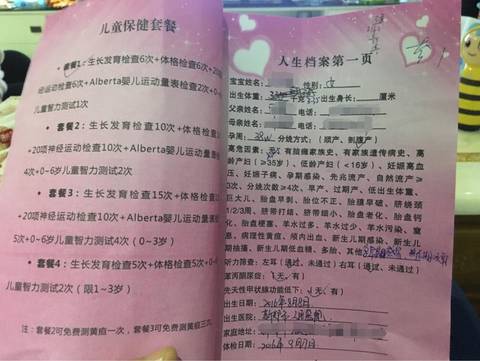 儿童保健套餐
套餐1：生长发育检查6次+体格检查6次+20项神
经运动检查6次+Alberta婴儿运动量表检查2次+0~6
儿童智力测试1次
套餐2：生长发育检查10次+体格检查10
+20项神经运动检查10次+Alberta婴儿运动量表
4次+0~6岁儿童智力测试2次
套餐3：生长发育检查15次+体格检查
+20项神经运动检查10次+Alberta婴儿运动量
5次+0~6岁儿童智力测试4次（0~3岁）
套餐4：生长发育检查5次+体格检查5次+0~
儿童智力测试2次（限1~3岁）
注：套餐2可免费测黄疸一次，套餐3可免费测黄疸三次
人生档案第一页
宝宝姓名： 性别：
出生体重： 千克 出生身长： 厘米
父亲姓名： 电话：
母亲姓名： 电话：
孕周：38W 分娩方式：（顺产、剖腹产）
高危因素： 有 有脑瘫家族史、有家族遗传病史、高
龄产妇（≥35岁）、低龄产妇（<16岁）、妊娠高血
压、妊娠子痫、孕期感染、先兆流产、自然流产≥
3次、分娩次数≥4次、早产、过期产、低出生体重、
巨大儿、胎盘早剥、胎位不正、胎膜早破、脐绕颈
1/2/3周、脐带打结、脐带细小、胎盘老化、胎盘钙
化、胎盘梗塞、羊水过多、羊水过少、羊水污染、窒
息、病理性黄疸、颅内出血、新生儿期感染、新生儿
期抽搐、新生儿期低血糖、多胎、其他
听力筛查：左耳（通过、未通过）右耳（通过、未通过）
苯丙酮尿症：（无、有）
先天性甲状腺功能低下：（无、有）
出生日期：2016年8月8日
出生医院：
家庭地址：
体检日期：2016年9月7日